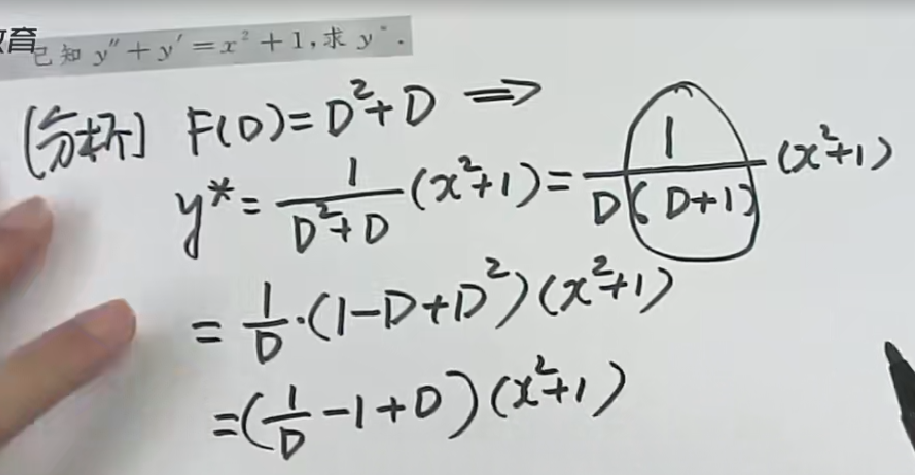 教育
已知 y″+y′=x²+1,求 y*.
[分析] F(D)=D²+D ⟹
y*=1/(D²+D) (x²+1)=1/(D(D+1)) (x²+1)
=1/D·(1-D+D²)(x²+1)
=(1/D-1+D)(x²+1)